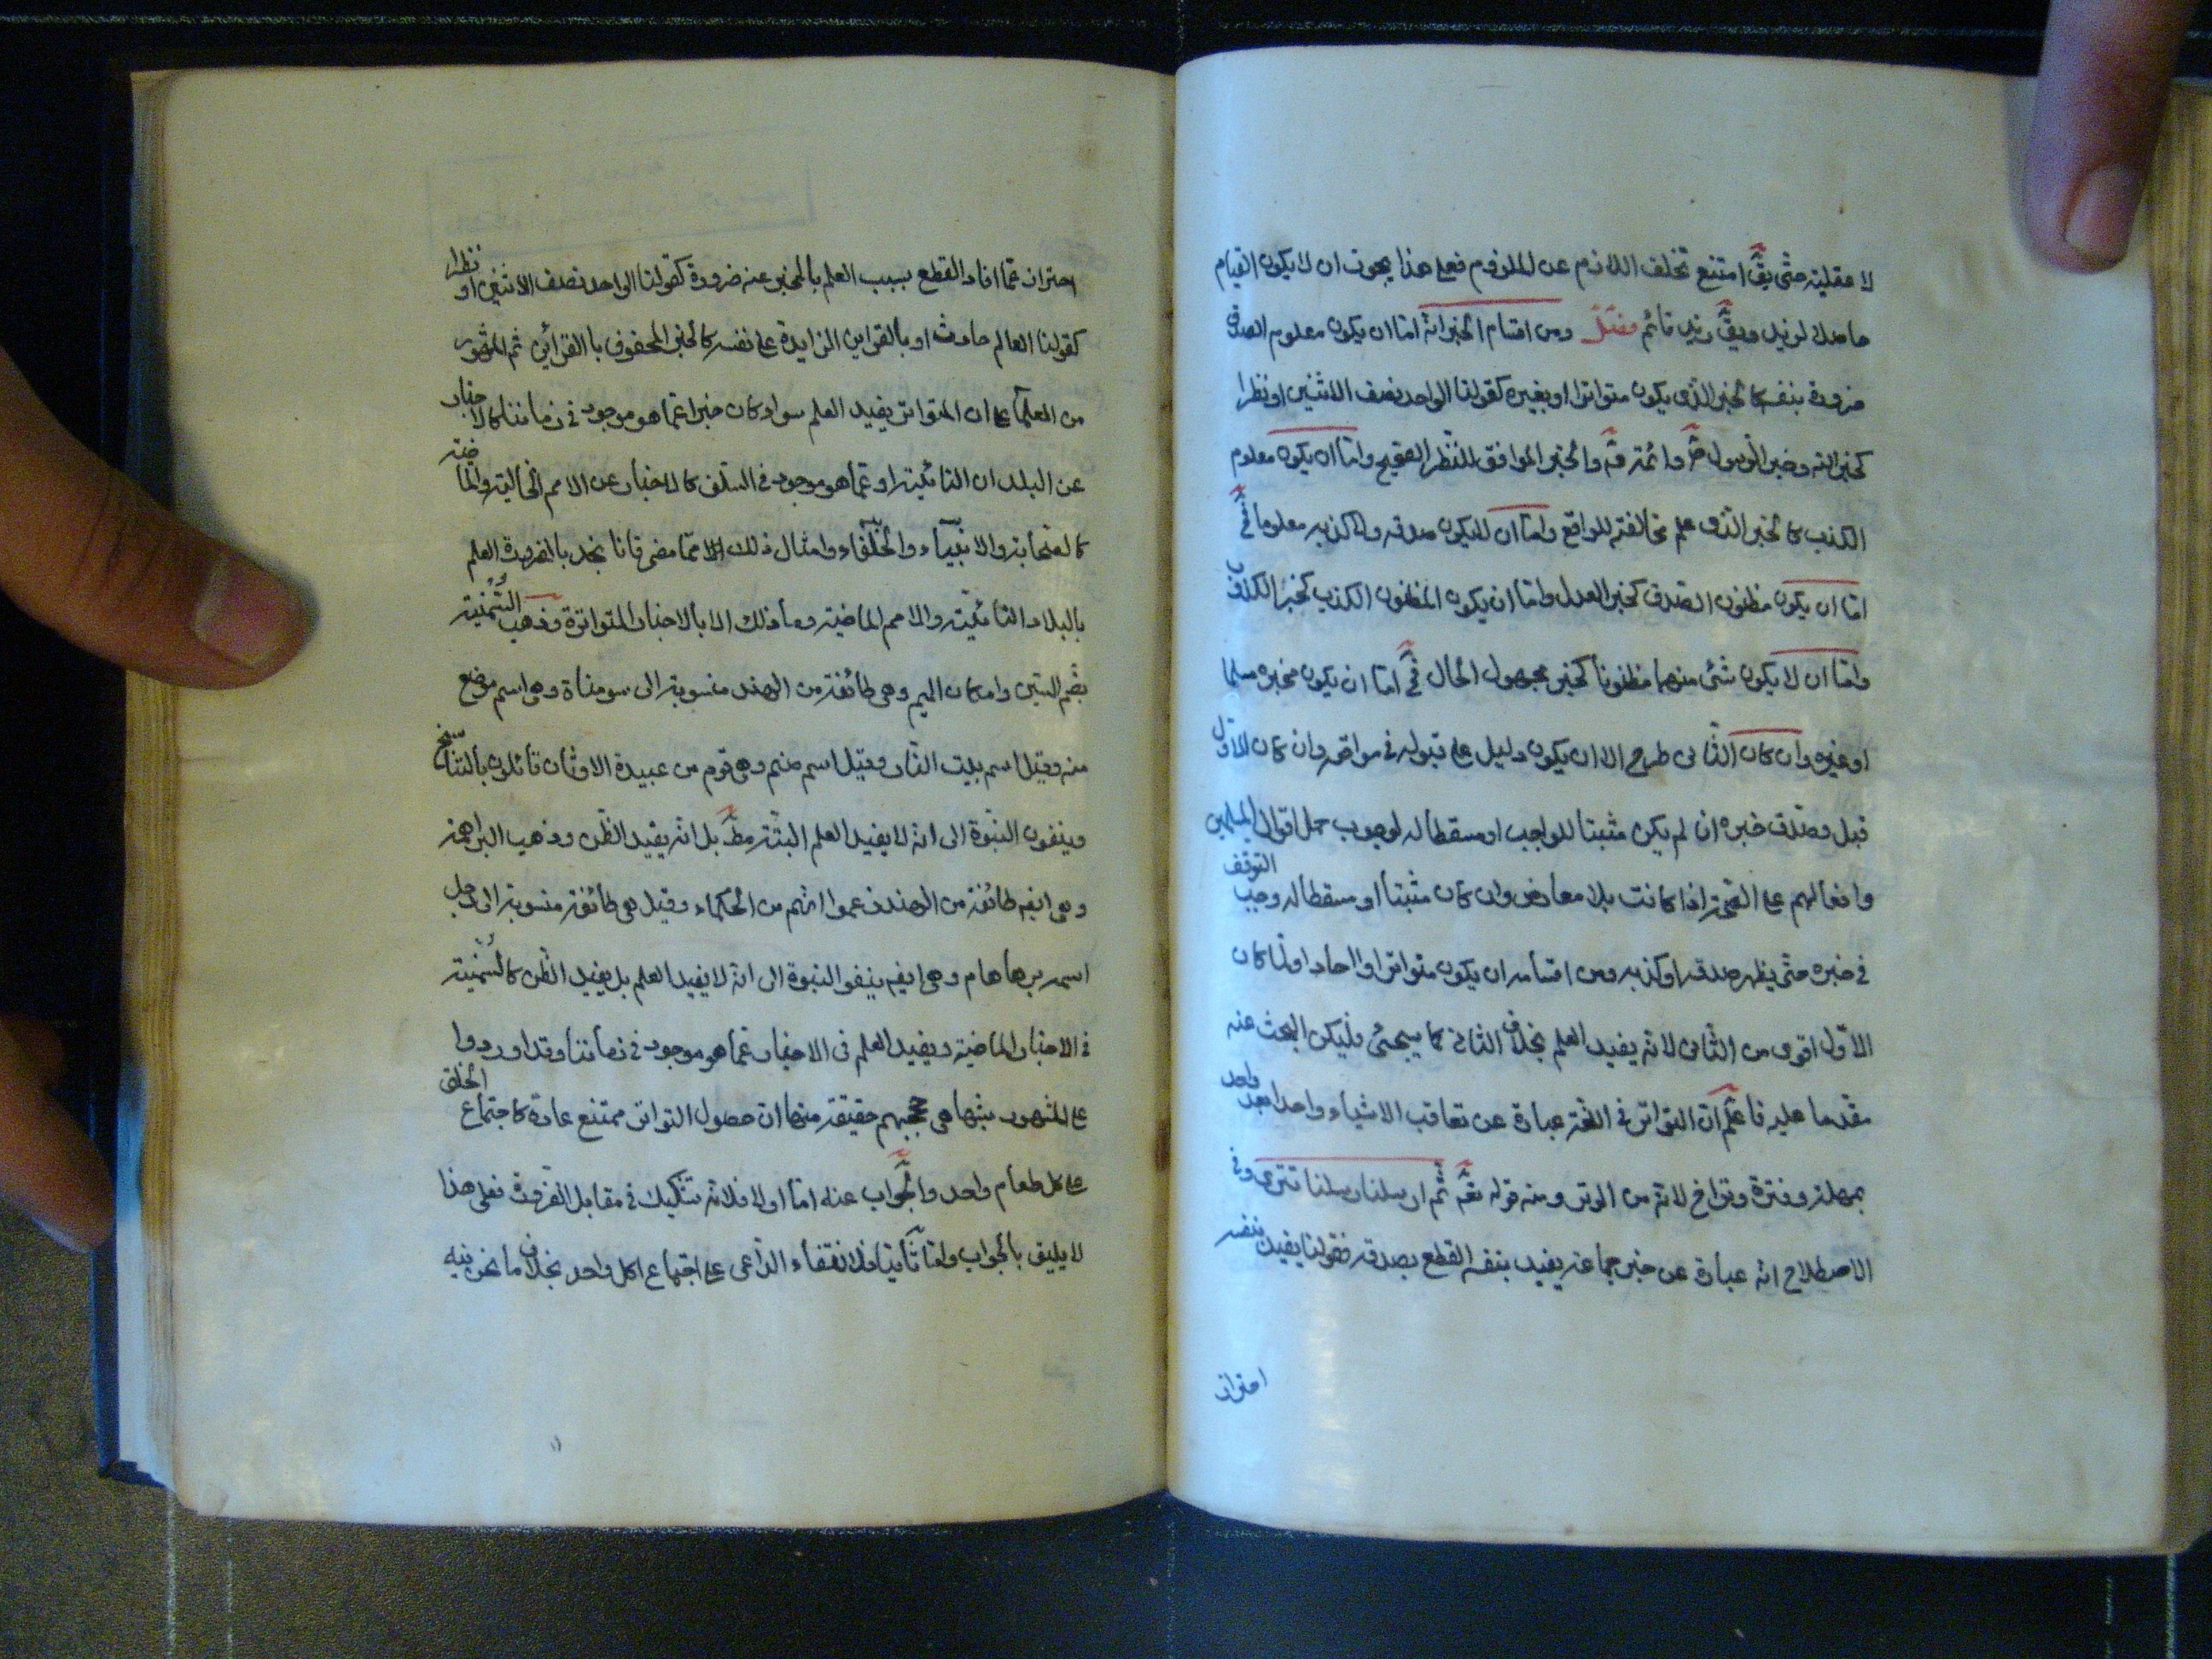 لا عقلية حتى يقّ امتنع تخلف اللازم عن الملزوم فعلى هذا يجوز ان لا يكون القيام
حاصلا لزيد ويقّ زيد قائم فصل ومن اقسام الخبر انه امّا ان يكون معلوم الصدق
ضرورة بنفسه كالخبر الذى يكون متواترا او بغيره كقولنا الواحد نصف الاثنين او نظرا
كخبر الله وخبر الرسول صّ وائمته قّه والخبر الموافق للنظر الصحيح وامّا ان يكون معلوم
الكذب كالخبر الذى علم مخالفته للواقع وامّا ان لايكون صدقه ولا كذبه معلوما فحّ
امّا ان يكون مظنون الصدق كخبر العدل وامّا ان يكون المظنون الكذب كخبر الكذوب
وامّا ان لا يكون شئ منهما مظنونا كخبر مجهول الحال فحّ امّا ان يكون مخبره مسلما
او غيره وان كان الثانى طرح الا ان يكون دليل على قبوله فى مواضع وان كان الاول
قبل وصدق خبره ان لم يكن مثبتا للواجب او مسقطا له لوجوب حمل اقوال المسلمين
وافعالهم على الصحة اذا كانت بلا معارض وان كان مثبتا او مسقطا له وجب التوقف
فى خبره حتى يظهر صدقه او كذبه ومن اقسامه ان يكون متواترا او احاد اولما كان
الاول اقوى من الثانى لانه يفيد العلم بخلاف الثانى كما سيجئ وليكن البحث عنه
مقدما عليه فاعلم ان التواتر فى اللغة عبارة عن تعاقب الاشياء واحدا بعد واحد
بمهلة وفترة وتراخ لانه من الوتر ومنه قوله تعّه ثم ارسلنا رسلنا تترى وفى
الاصطلاح انه عبارة عن خبر جماعة يفيد بنفسه القطع بصدقه فقولنا يفيد بنفسه
احتراز
احتراز عمّا افاد القطع بسبب العلم بالمخبر عنه ضرورة كقولنا الواحد نصف الاثنين او نظرا
كقولنا العالم حادث او بالقراين الزايدة على نفسه كالخبر المحفوف باالقرائن ثم المشهور
من العلمآ على ان المتواتر يفيد العلم سواء كان خبرا عمّا هو موجود فى زماننا كالاخبار
عن البلدان النائية او عمّا هو موجود فى السلف كالاخبار عن الامم الخالية والماضية
كالصحابة والانبياء والخلفاء وامثال ذلك مما مضى فانا نجد باالضرورة العلم
بالبلاد النائية والامم الماضية وما ذلك الا بالاخبار المتواترة وذهب السُمنية
بضم السين وامكان الميم وهى طائفة من الهند منسوبة الى سومنات وهى اسم موضع
منه وقيل اسم بيت النار وقيل اسم صنم وهى قوم من عبيدة الاوثان قائلون بالتناسخ
وينفون النبوة الى انه لا يفيد العلم البتة مطّ بل انه يفيد الظن وذهب البراهمة
وهى ايضه طائفة من الهند زعموا انهم من الحكماء وقيل هى طائفة منسوبة الى رجل
اسمه برهاهام وهى ايضه ينفو النبوة الى انه لا يفيد العلم بل يفيد الظن كالسُمنية
فى الاخبار الماضية ويفيد العلم فى الاخبار عمّا هو موجود فى زماننا وقد اوردوا
على المشهور شبها هى حججهم حقيقة منها ان حصول التواتر ممتنع عادة كاجتماع الخلق
على كل طعام واحد والجواب عنه امّا اولا فلانه تشكيك فى مقابل الضرورة فعلى هذا
لا يليق بالجواب وامّا ثانيا فلانتفاء الداعى على اجتماع اكل واحد بخلاف ما نحن فيه